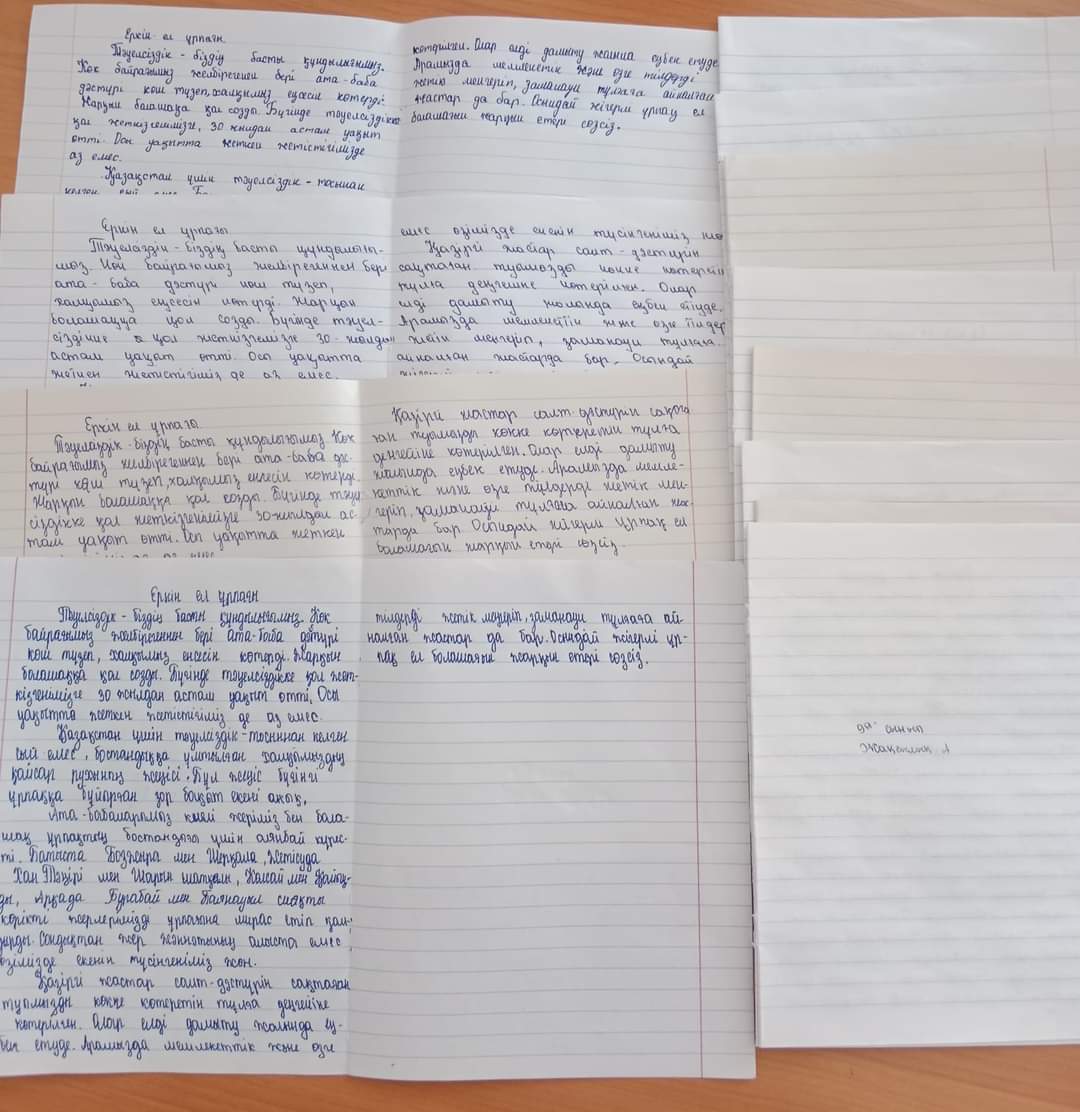 Еркін ел ұрпағы
Тәуелсіздік - біздің басты құндылығымыз.
Көк байрағымыз желбірегенен бері ата-баба
дәстүрі көш түзеп, халқымыз еңсесін көтерді.
Жарқын болашаққа қол созды. Бүгінде тәуелсіздікке
қол жеткізгенімізге, 30 жылдан астам уақыт
өтті. Осы уақытта жеткен жетістігімізде
аз емес.
Қазақстан үшін тәуелсіздік - тосыннан
көтерілген. Олар елді дамыту жолында еңбек етуде
Арамызда мемлекеттік және өзге тілдерді
жетік меңгеріп, заманауи тұлғаға айналған
жастар да бар. Осындай жігерлі ұрпақ ел
болашағын жарқын етері сөзсіз.
Еркін ел ұрпағы
Тәуелсіздік - біздің басты құндылығы-
мыз. Көк байрағымыз желбірегеннен бері
ата-баба дәстүрі көш түзеп,
халқымыз еңсесін көтерді. Жарқын
болашаққа қол созды. Бүгінде тәуел-
сіздікке қол жеткізгенімізге 30-жылдан
астам уақыт өтті. Осы уақытта
жеткен жетістігіміз де аз емес.
емес өзімізде екенін түсінгеніміз жөн
Қазіргі жастар салт-дәстүрін
сақтаған туымызды көкке көтеретін
тұлға деңгейіне көтерілген. Олар
елді дамыту жолында еңбек етуде.
Арамызда мемлекеттік және өзге тілдер
жетік меңгеріп, заманауи тұлғаға
айналған жастарда бар. Осындай
Еркін ел ұрпағы
Тәуелсіздік - біздің басты құндылығымыз. Көк
байрағымыз желбірегеннен бері ата-баба дәс-
түрі көш түзеп, халқымыз еңсесін көтерді.
Жарқын болашаққа қол созды. Бүгінде тәуел
сіздікке қол жеткізгенімізге 30-жылдан ас-
там уақыт өтті. Осы уақытта жеткен
Қазіргі жастар салт-дәстүрін сақта
ған туымызды көкке көтеретін тұлға
деңгейіне көтерілген. Олар елді дамыту
жолында еңбек етуде. Арамызда мемле-
кеттік және өзге тілдерді жетік мең-
геріп, заманауи тұлғаға айналған жас-
тарда бар. Осындай жігерлі ұрпақ ел
болашағын жарқын етері сөзсіз
Еркін ел ұрпағы
Тәуелсіздік - біздің басты құндылығымыз. Көк
байрағымыз желбірегеннен бері ата-баба дәстүрі
көш түзеп, халқымыз еңсесін көтерді. Жарқын
болашаққа қол созды. Бүгінде тәуелсіздікке қол жет-
кізгенімізге 30 жылдан астам уақыт өтті. Осы
уақытта жеткен жетістігіміз де аз емес.
Қазақстан үшін тәуелсіздік - тосыннан келген
сый емес, бостандыққа ұмтылған халқымыздың
қайсар рухының жеңісі. Бұл жеңіс бүгінгі
ұрпаққа бұйырған зор бақыт екені анық.
Ата-бабаларымыз киелі жеріміз бен бола-
шақ ұрпақтың бостандығы үшін аянбай күрес-
ті. Батыста Бозжыра мен Шерқала, Жетісуда
Хан Тәңірі мен Шарын шатқалы, Қолсай мен Қайың-
ды, Арқада Бурабай мен Баянауыл сияқты
көрікті жерлерімізді ұрпағына мирас етіп қал-
дырды. Сондықтан жер жаннатының алыста емес
өзімізде екенін түсінгеніміз жөн.
Қазіргі жастар салт-дәстүрін сақтаған
туымызды көкке көтеретін тұлға деңгейіне
көтерілген. Олар елді дамыту жолында ең-
бек етуде. Арамызда мемлекеттік және өзге
тілдерді жетік меңгеріп, заманауи тұлғаға ай-
налған жастар да бар. Осындай жігерлі ұр-
пақ ел болашағын жарқын етері сөзсіз.